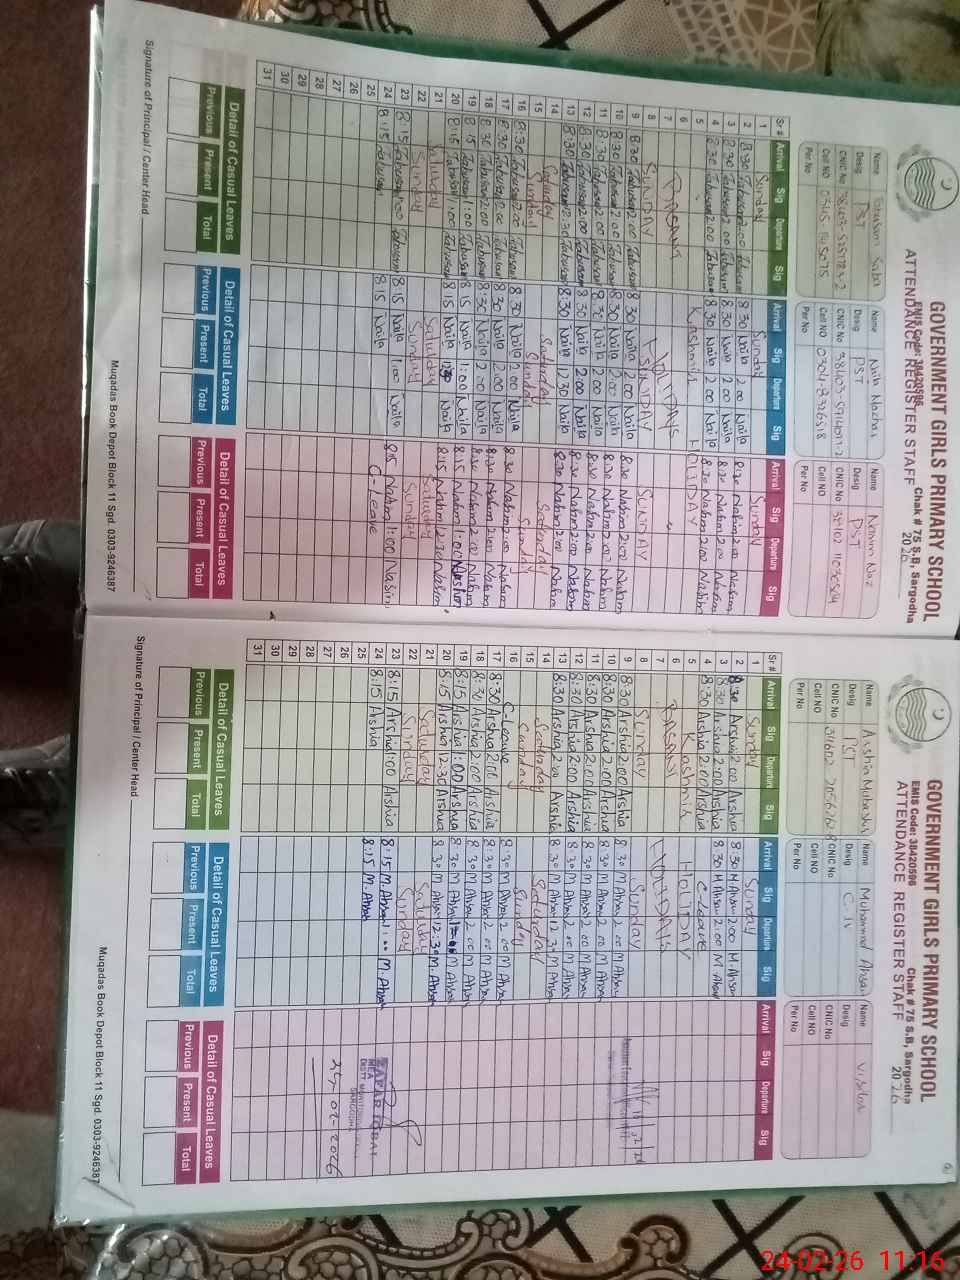 GOVERNMENT GIRLS PRIMARY SCHOOL
EMIS Code: 38420596 Chak # 75 S.B, Sargodha
ATTENDANCE REGISTER STAFF 2026
Name Tabusam Saba
Desig PST
CNIC No
Cell NO
Per No
Name Naila Nazhar
Desig PST
CNIC No
Cell NO
Per No
Name Nasim Naz
Desig PST
CNIC No
Cell NO
Per No
Sr # Arrival Sig Departure Sig Arrival Sig Departure Sig Arrival Sig Departure Sig
1 Sunday Sunday Sunday
2 8:30 Tabusam 2:00 Tabusam 8:30 Naila 2:00 Naila 8:30 Nasim 2:00 Nasim
3 8:30 Tabusam 2:00 Tabusam 8:30 Naila 2:00 Naila 8:30 Nasim 2:00 Nasim
4 8:30 Tabusam 2:00 Tabusam 8:30 Naila 2:00 Naila 8:30 Nasim 2:00 Nasim
5 Kashmir HOLIDAY
6
7 BASANT HOLIDAYS
8 SUNDAY SUNDAY SUNDAY
9 8:30 Tabusam 2:00 Tabusam 8:30 Naila 2:00 Naila 8:30 Nasim 2:00 Nasim
10 8:30 Tabusam 2:00 Tabusam 8:30 Naila 2:00 Naila 8:30 Nasim 2:00 Nasim
11 8:30 Tabusam 2:00 Tabusam 8:30 Naila 2:00 Naila 8:30 Nasim 2:00 Nasim
12 8:30 Tabusam 2:00 Tabusam 8:30 Naila 2:00 Naila 8:30 Nasim 2:00 Nasim
13 8:30 Tabusam 12:30 Tabusam 8:30 Naila 12:30 Naila 8:30 Nasim 2:00 Nasim
14 Saturday Saturday Saturday
15 Sunday Sunday Sunday
16 8:30 Tabusam 2:00 Tabusam 8:30 Naila 2:00 Naila 8:30 Nasim 2:00 Nasim
17 8:30 Tabusam 2:00 Tabusam 8:30 Naila 2:00 Naila 8:30 Nasim 2:00 Nasim
18 8:30 Tabusam 2:00 Tabusam 8:30 Naila 2:00 Naila 8:30 Nasim 2:00 Nasim
19 8:15 Tabusam 1:00 Tabusam 8:15 Naila 1:00 Naila 8:15 Nasim 1:00 Nasim
20 8:15 Tabusam 1:00 Tabusam 8:15 Naila Naila 8:15 Nasim 12:30 Nasim
21 Saturday Saturday Saturday
22 Sunday Sunday Sunday
23 8:15 Tabusam 1:00 Tabusam 8:15 Naila 1:00 Naila 8:15 Nasim 1:00 Nasim
24 8:15 Tabusam 8:15 Naila C-Leave
25
26
27
28
29
30
31
Detail of Casual Leaves Detail of Casual Leaves Detail of Casual Leaves
Previous Present Total Previous Present Total Previous Present Total
Signature of Principal / Center Head
Muqadas Book Depot Block 11 Sgd. 0303-9246387
GOVERNMENT GIRLS PRIMARY SCHOOL
EMIS Code: 38420596 Chak # 75 S.B, Sargodha
ATTENDANCE REGISTER STAFF 2026
Name Arshia Mubashir
Desig PST
CNIC No
Cell NO
Per No
Name Muhammad Ahsan
Desig C.IV
CNIC No
Cell NO
Per No
Name Visitor
Desig
CNIC No
Cell NO
Per No
Sr # Arrival Sig Departure Sig Arrival Sig Departure Sig Arrival Sig Departure Sig
1 Sunday Sunday
2 8:30 Arshia 2:00 Arshia 8:30 M.Ahsan 2:00 M.Ahsan
3 8:30 Arshia 2:00 Arshia 8:30 M.Ahsan 2:00 M.Ahsan
4 8:30 Arshia 2:00 Arshia C-Leave
5 Kashmir HOLIDAY
6 BASANT
7 HOLIDAYS
8 Sunday Sunday
9 8:30 Arshia 2:00 Arshia 8:30 M Ahsan 2:00 M Ahsan
10 8:30 Arshia 2:00 Arshia 8:30 M Ahsan 2:00 M Ahsan
11 8:30 Arshia 2:00 Arshia 8:30 M Ahsan 2:00 M Ahsan
12 8:30 Arshia 2:00 Arshia 8:30 M Ahsan 2:00 M Ahsan
13 8:30 Arshia 2:00 Arshia 8:30 M Ahsan 12:30 M Ahsan
14 Saturday Saturday
15 Sunday Sunday
16 C-Leave 8:30 M Ahsan 2:00 M Ahsan
17 8:30 Arshia 2:00 Arshia 8:30 M Ahsan 2:00 M Ahsan
18 8:30 Arshia 2:00 Arshia 8:30 M Ahsan 2:00 M Ahsan
19 8:15 Arshia 1:00 Arshia 8:30 M Ahsan M Ahsan
20 8:15 Arshia 12:30 Arshia 8:30 M Ahsan 12:30 M.Ahsan
21 Saturday Saturday
22 Sunday Sunday
23 8:15 Arshia 1:00 Arshia 8:15 M.Ahsan 1:00 M.Ahsan
24 8:15 Arshia 8:15 M.Ahsan
ZAFAR IQBAL
MEA
SARGODHA
24-02-2026
25
26
27
28
29
30
31
Detail of Casual Leaves Detail of Casual Leaves Detail of Casual Leaves
Previous Present Total Previous Present Total Previous Present Total
Signature of Principal / Center Head
Muqadas Book Depot Block 11 Sgd. 0303-9246387
24-02-26 11:16